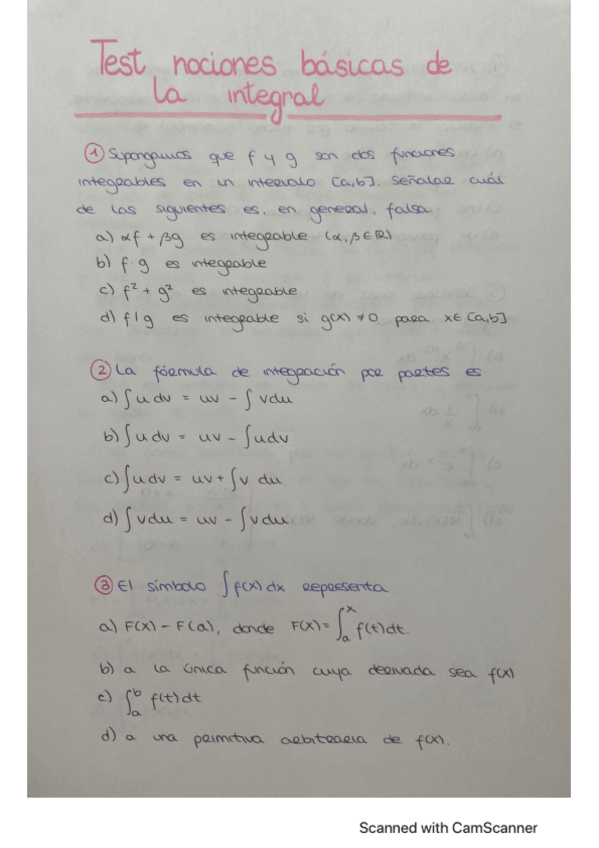 Test nociones básicas de
la integral
1 Supongamos que f y g son dos funciones
integrables en un intervalo [a,b]. Señalar cuál
de las siguientes es, en general, falsa.
a) αf + βg es integrable (α,β∈ℝ)
b) f·g es integrable
c) f² + g² es integrable
d) f/g es integrable si g(x) ≠ 0 para x∈[a,b]
2 La fórmula de integración por partes es
a) ∫u dv = uv - ∫vdu
b) ∫u dv = uv - ∫udv
c) ∫udv = uv + ∫v du
d) ∫vdu = uv - ∫vdu
3 El símbolo ∫f(x)dx representa
a) F(x) - F(a), donde F(x) = ∫ₐˣ f(t)dt.
b) a la única función cuya derivada sea f(x)
c) ∫ₐᵇ f(t)dt
d) a una primitiva arbitraria de f(x).
Scanned with CamScanner